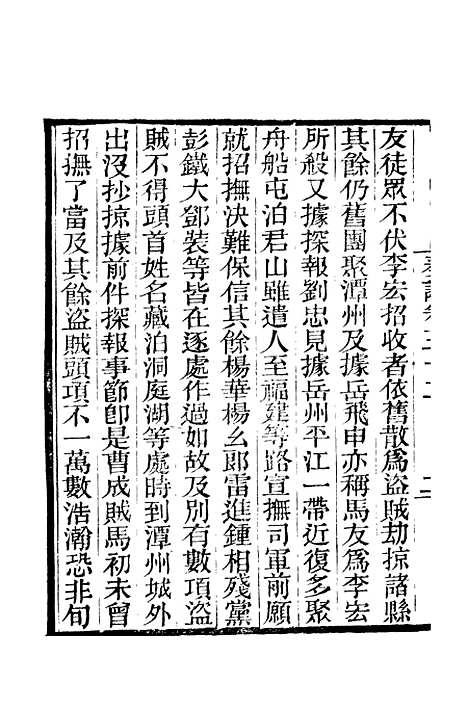 友徒眾不伏李宏招收者依舊散爲盜賊劫掠諸縣
其餘仍舊團聚潭州及據岳飛申亦稱馬友爲李宏
所殺又據探報劉忠見據岳州平江一帶近復多聚
舟船屯泊君山雖遣人至福建等路宣撫司軍前願
就招撫決難保信其餘楊華楊幺郎雷進鍾相殘黨
彭鐵大鄧裝等皆在逐處作過如故及別有數項盜
賊不得頭首姓名藏泊洞庭湖等處時到潭州城外
出沒抄掠據前件探報事節卽是曹成賊馬初未曾
招撫了當及其餘盜賊頭項不一萬數浩瀚恐非旬